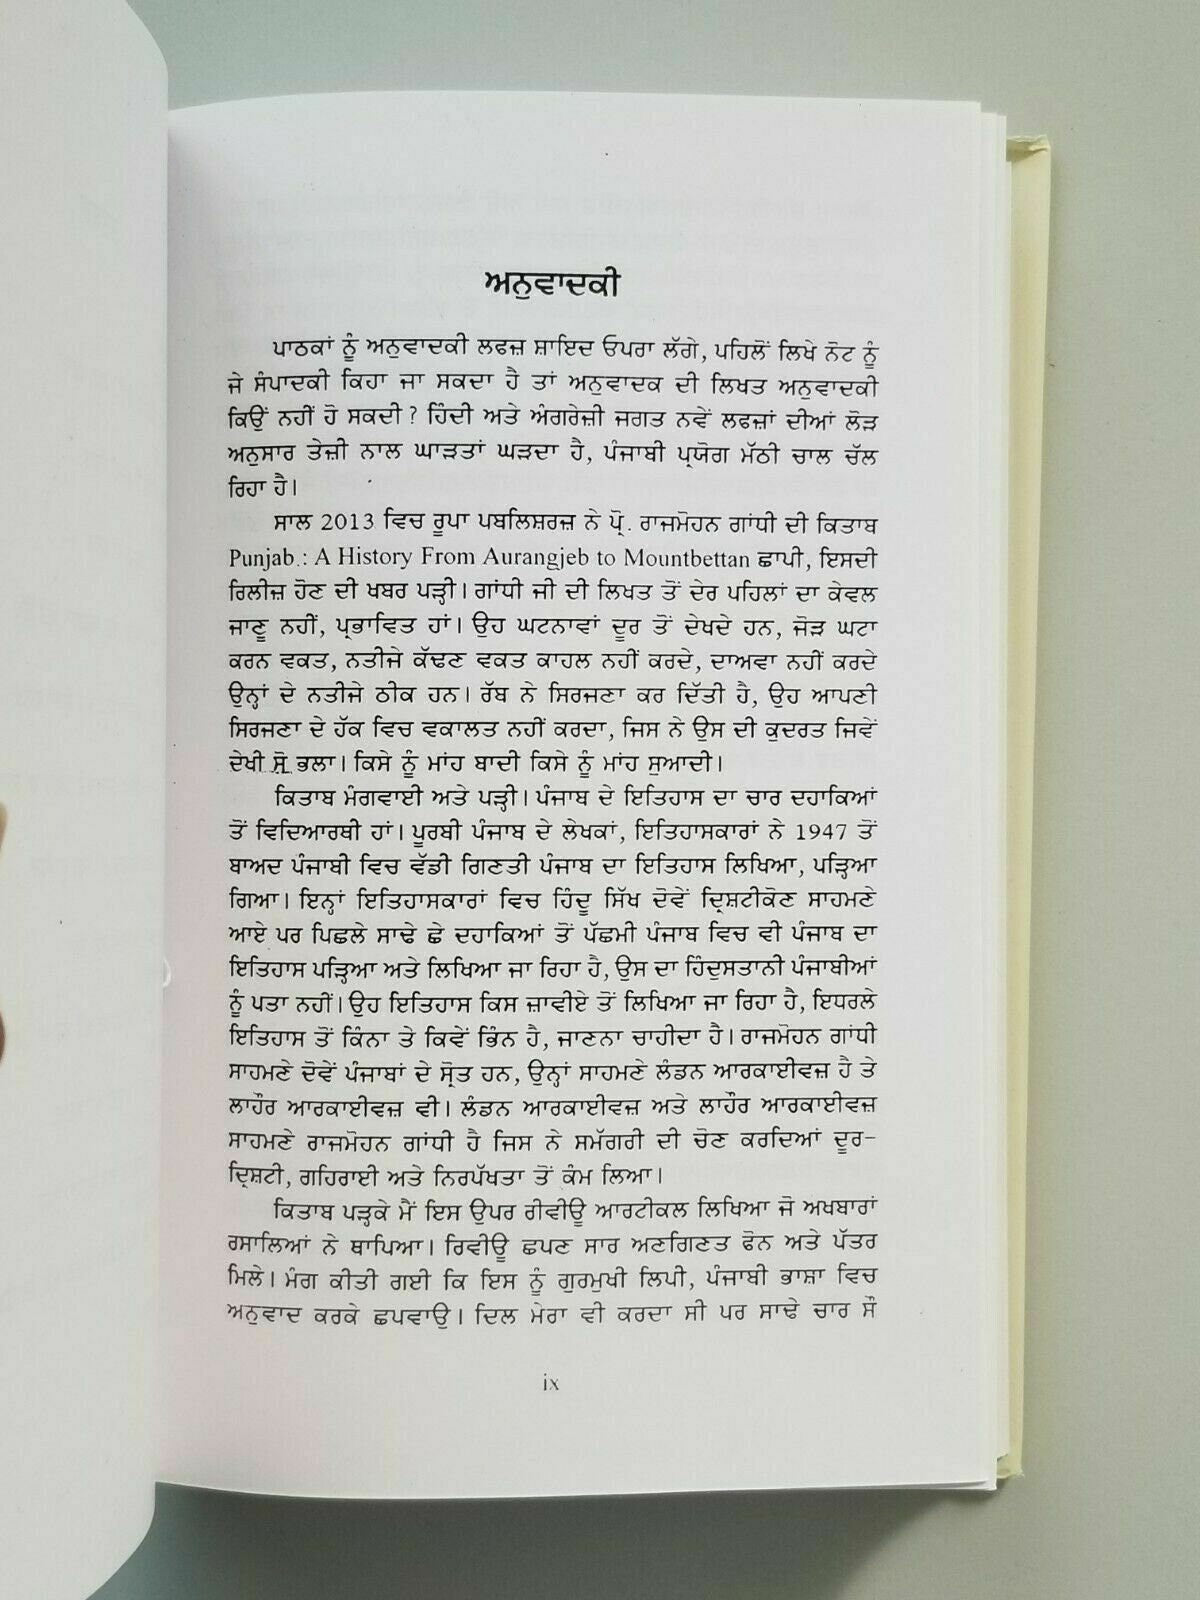 ਅਨੁਵਾਦਕੀ
ਪਾਠਕਾਂ ਨੂੰ ਅਨੁਵਾਦਕੀ ਲਫਜ਼ ਸ਼ਾਇਦ ਓਪਰਾ ਲੱਗੇ, ਪਹਿਲੋਂ ਲਿਖੇ ਨੋਟ ਨੂੰ
ਜੇ ਸੰਪਾਦਕੀ ਕਿਹਾ ਜਾ ਸਕਦਾ ਹੈ ਤਾਂ ਅਨੁਵਾਦਕ ਦੀ ਲਿਖਤ ਅਨੁਵਾਦਕੀ
ਕਿਉਂ ਨਹੀਂ ਹੋ ਸਕਦੀ? ਹਿੰਦੀ ਅਤੇ ਅੰਗਰੇਜ਼ੀ ਜਗਤ ਨਵੇਂ ਲਫਜ਼ਾਂ ਦੀਆਂ ਲੋੜ
ਅਨੁਸਾਰ ਤੇਜ਼ੀ ਨਾਲ ਘਾੜਤਾਂ ਘੜਦਾ ਹੈ, ਪੰਜਾਬੀ ਪ੍ਰਯੋਗ ਮੱਠੀ ਚਾਲ ਚੱਲ
ਰਿਹਾ ਹੈ।
ਸਾਲ 2013 ਵਿਚ ਰੂਪਾ ਪਬਲਿਸ਼ਰਜ਼ ਨੇ ਪ੍ਰੋ. ਰਾਜਮੋਹਨ ਗਾਂਧੀ ਦੀ ਕਿਤਾਬ
Punjab : A History From Aurangjeb to Mountbettan ਛਾਪੀ, ਇਸਦੀ
ਰਿਲੀਜ਼ ਹੋਣ ਦੀ ਖਬਰ ਪੜ੍ਹੀ। ਗਾਂਧੀ ਜੀ ਦੀ ਲਿਖਤ ਤੋਂ ਦੇਰ ਪਹਿਲਾਂ ਦਾ ਕੇਵਲ
ਜਾਣੂ ਨਹੀਂ, ਪ੍ਰਭਾਵਿਤ ਹਾਂ। ਉਹ ਘਟਨਾਵਾਂ ਦੂਰ ਤੋਂ ਦੇਖਦੇ ਹਨ, ਜੋੜ ਘਟਾ
ਕਰਨ ਵਕਤ, ਨਤੀਜੇ ਕੱਢਣ ਵਕਤ ਕਾਹਲ ਨਹੀਂ ਕਰਦੇ, ਦਾਅਵਾ ਨਹੀਂ ਕਰਦੇ
ਉਨ੍ਹਾਂ ਦੇ ਨਤੀਜੇ ਠੀਕ ਹਨ। ਰੱਬ ਨੇ ਸਿਰਜਣਾ ਕਰ ਦਿੱਤੀ ਹੈ, ਉਹ ਆਪਣੀ
ਸਿਰਜਣਾ ਦੇ ਹੱਕ ਵਿਚ ਵਕਾਲਤ ਨਹੀਂ ਕਰਦਾ, ਜਿਸ ਨੇ ਉਸ ਦੀ ਕੁਦਰਤ ਜਿਵੇਂ
ਦੇਖੀ ਸੋ ਭਲਾ। ਕਿਸੇ ਨੂੰ ਮਾਂਹ ਬਾਦੀ ਕਿਸੇ ਨੂੰ ਮਾਂਹ ਸੁਆਦੀ।
ਕਿਤਾਬ ਮੰਗਵਾਈ ਅਤੇ ਪੜ੍ਹੀ। ਪੰਜਾਬ ਦੇ ਇਤਿਹਾਸ ਦਾ ਚਾਰ ਦਹਾਕਿਆਂ
ਤੋਂ ਵਿਦਿਆਰਥੀ ਹਾਂ। ਪੂਰਬੀ ਪੰਜਾਬ ਦੇ ਲੇਖਕਾਂ, ਇਤਿਹਾਸਕਾਰਾਂ ਨੇ 1947 ਤੋਂ
ਬਾਅਦ ਪੰਜਾਬੀ ਵਿਚ ਵੱਡੀ ਗਿਣਤੀ ਪੰਜਾਬ ਦਾ ਇਤਿਹਾਸ ਲਿਖਿਆ, ਪੜ੍ਹਿਆ
ਗਿਆ। ਇਨ੍ਹਾਂ ਇਤਿਹਾਸਕਾਰਾਂ ਵਿਚ ਹਿੰਦੂ ਸਿੱਖ ਦੋਵੇਂ ਦ੍ਰਿਸ਼ਟੀਕੋਣ ਸਾਹਮਣੇ
ਆਏ ਪਰ ਪਿਛਲੇ ਸਾਢੇ ਛੇ ਦਹਾਕਿਆਂ ਤੋਂ ਪੱਛਮੀ ਪੰਜਾਬ ਵਿਚ ਵੀ ਪੰਜਾਬ ਦਾ
ਇਤਿਹਾਸ ਪੜ੍ਹਿਆ ਅਤੇ ਲਿਖਿਆ ਜਾ ਰਿਹਾ ਹੈ, ਉਸ ਦਾ ਹਿੰਦੁਸਤਾਨੀ ਪੰਜਾਬੀਆਂ
ਨੂੰ ਪਤਾ ਨਹੀਂ। ਉਹ ਇਤਿਹਾਸ ਕਿਸ ਜ਼ਾਵੀਏ ਤੋਂ ਲਿਖਿਆ ਜਾ ਰਿਹਾ ਹੈ, ਇਧਰਲੇ
ਇਤਿਹਾਸ ਤੋਂ ਕਿੰਨਾ ਤੇ ਕਿਵੇਂ ਭਿੰਨ ਹੈ, ਜਾਣਨਾ ਚਾਹੀਦਾ ਹੈ। ਰਾਜਮੋਹਨ ਗਾਂਧੀ
ਸਾਹਮਣੇ ਦੋਵੇਂ ਪੰਜਾਬਾਂ ਦੇ ਸ੍ਰੋਤ ਹਨ, ਉਨ੍ਹਾਂ ਸਾਹਮਣੇ ਲੰਡਨ ਆਰਕਾਈਵਜ਼ ਹੈ ਤੇ
ਲਾਹੌਰ ਆਰਕਾਈਵਜ਼ ਵੀ। ਲੰਡਨ ਆਰਕਾਈਵਜ਼ ਅਤੇ ਲਾਹੌਰ ਆਰਕਾਈਵਜ਼
ਸਾਹਮਣੇ ਰਾਜਮੋਹਨ ਗਾਂਧੀ ਹੈ ਜਿਸ ਨੇ ਸਮੱਗਰੀ ਦੀ ਚੋਣ ਕਰਦਿਆਂ ਦੂਰ-
ਦ੍ਰਿਸ਼ਟੀ, ਗਹਿਰਾਈ ਅਤੇ ਨਿਰਪੱਖਤਾ ਤੋਂ ਕੰਮ ਲਿਆ।
ਕਿਤਾਬ ਪੜ੍ਹਕੇ ਮੈਂ ਇਸ ਉਪਰ ਰੀਵੀਊ ਆਰਟੀਕਲ ਲਿਖਿਆ ਜੋ ਅਖਬਾਰਾਂ
ਰਸਾਲਿਆਂ ਨੇ ਥਾਪਿਆ। ਰਿਵੀਊ ਛਪਣ ਸਾਰ ਅਣਗਿਣਤ ਫੋਨ ਅਤੇ ਪੱਤਰ
ਮਿਲੇ। ਮੰਗ ਕੀਤੀ ਗਈ ਕਿ ਇਸ ਨੂੰ ਗੁਰਮੁਖੀ ਲਿਪੀ, ਪੰਜਾਬੀ ਭਾਸ਼ਾ ਵਿਚ
ਅਨੁਵਾਦ ਕਰਕੇ ਛਪਵਾਉ। ਦਿਲ ਮੇਰਾ ਵੀ ਕਰਦਾ ਸੀ ਪਰ ਸਾਢੇ ਚਾਰ ਸੌ
ix